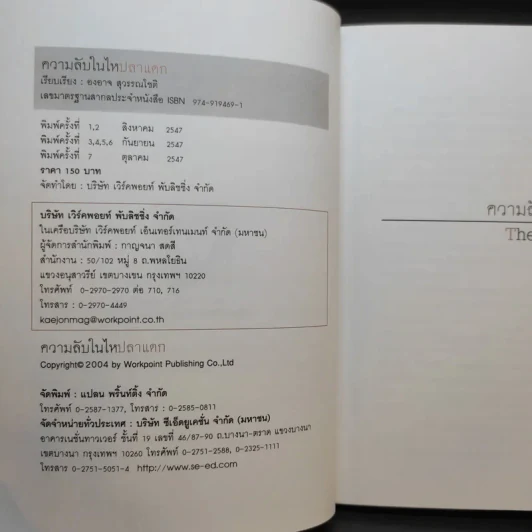 ความลับในไหปลาแดก
เรียบเรียง : องอาจ สุวรรณโชติ
เลขมาตรฐานสากลประจำหนังสือ ISBN 974-919469-1
พิมพ์ครั้งที่ 1,2 สิงหาคม 2547
พิมพ์ครั้งที่ 3,4,5,6 กันยายน 2547
พิมพ์ครั้งที่ 7 ตุลาคม 2547
ราคา 150 บาท
จัดทำโดย : บริษัท เวิร์คพอยท์ พับลิชชิ่ง จำกัด
บริษัท เวิร์คพอยท์ พับลิชชิ่ง จำกัด
ในเครือบริษัท เวิร์คพอยท์ เอ็นเทอร์เทนเมนท์ จำกัด (มหาชน)
ผู้จัดการสำนักพิมพ์ : กาญจนา สดสี
สำนักงาน : 50/102 หมู่ 8 ถ.พหลโยธิน
แขวงอนุสาวรีย์ เขตบางเขน กรุงเทพฯ 10220
โทรศัพท์ 0-2970-2970 ต่อ 710, 716
โทรสาร : 0-2970-4449
kaejonmag@workpoint.co.th
ความลับในไหปลาแดก
Copyright© 2004 by Workpoint Publishing Co.,Ltd
จัดพิมพ์ : แปลน พริ้นท์ติ้ง จำกัด
โทรศัพท์ 0-2587-1377, โทรสาร : 0-2585-0811
จัดจำหน่ายทั่วประเทศ : บริษัท ซีเอ็ดยูเคชั่น จำกัด (มหาชน)
อาคารเนชั่นทาวเวอร์ ชั้นที่ 19 เลขที่ 46/87-90 ถ.บางนา-ตราด แขวงบางนา
เขตบางนา กรุงเทพฯ 10260 โทรศัพท์ 0-2751-2588, 0-2325-1111
โทรสาร 0-2751-5051-4 http://www.se-ed.com
ความลั
The